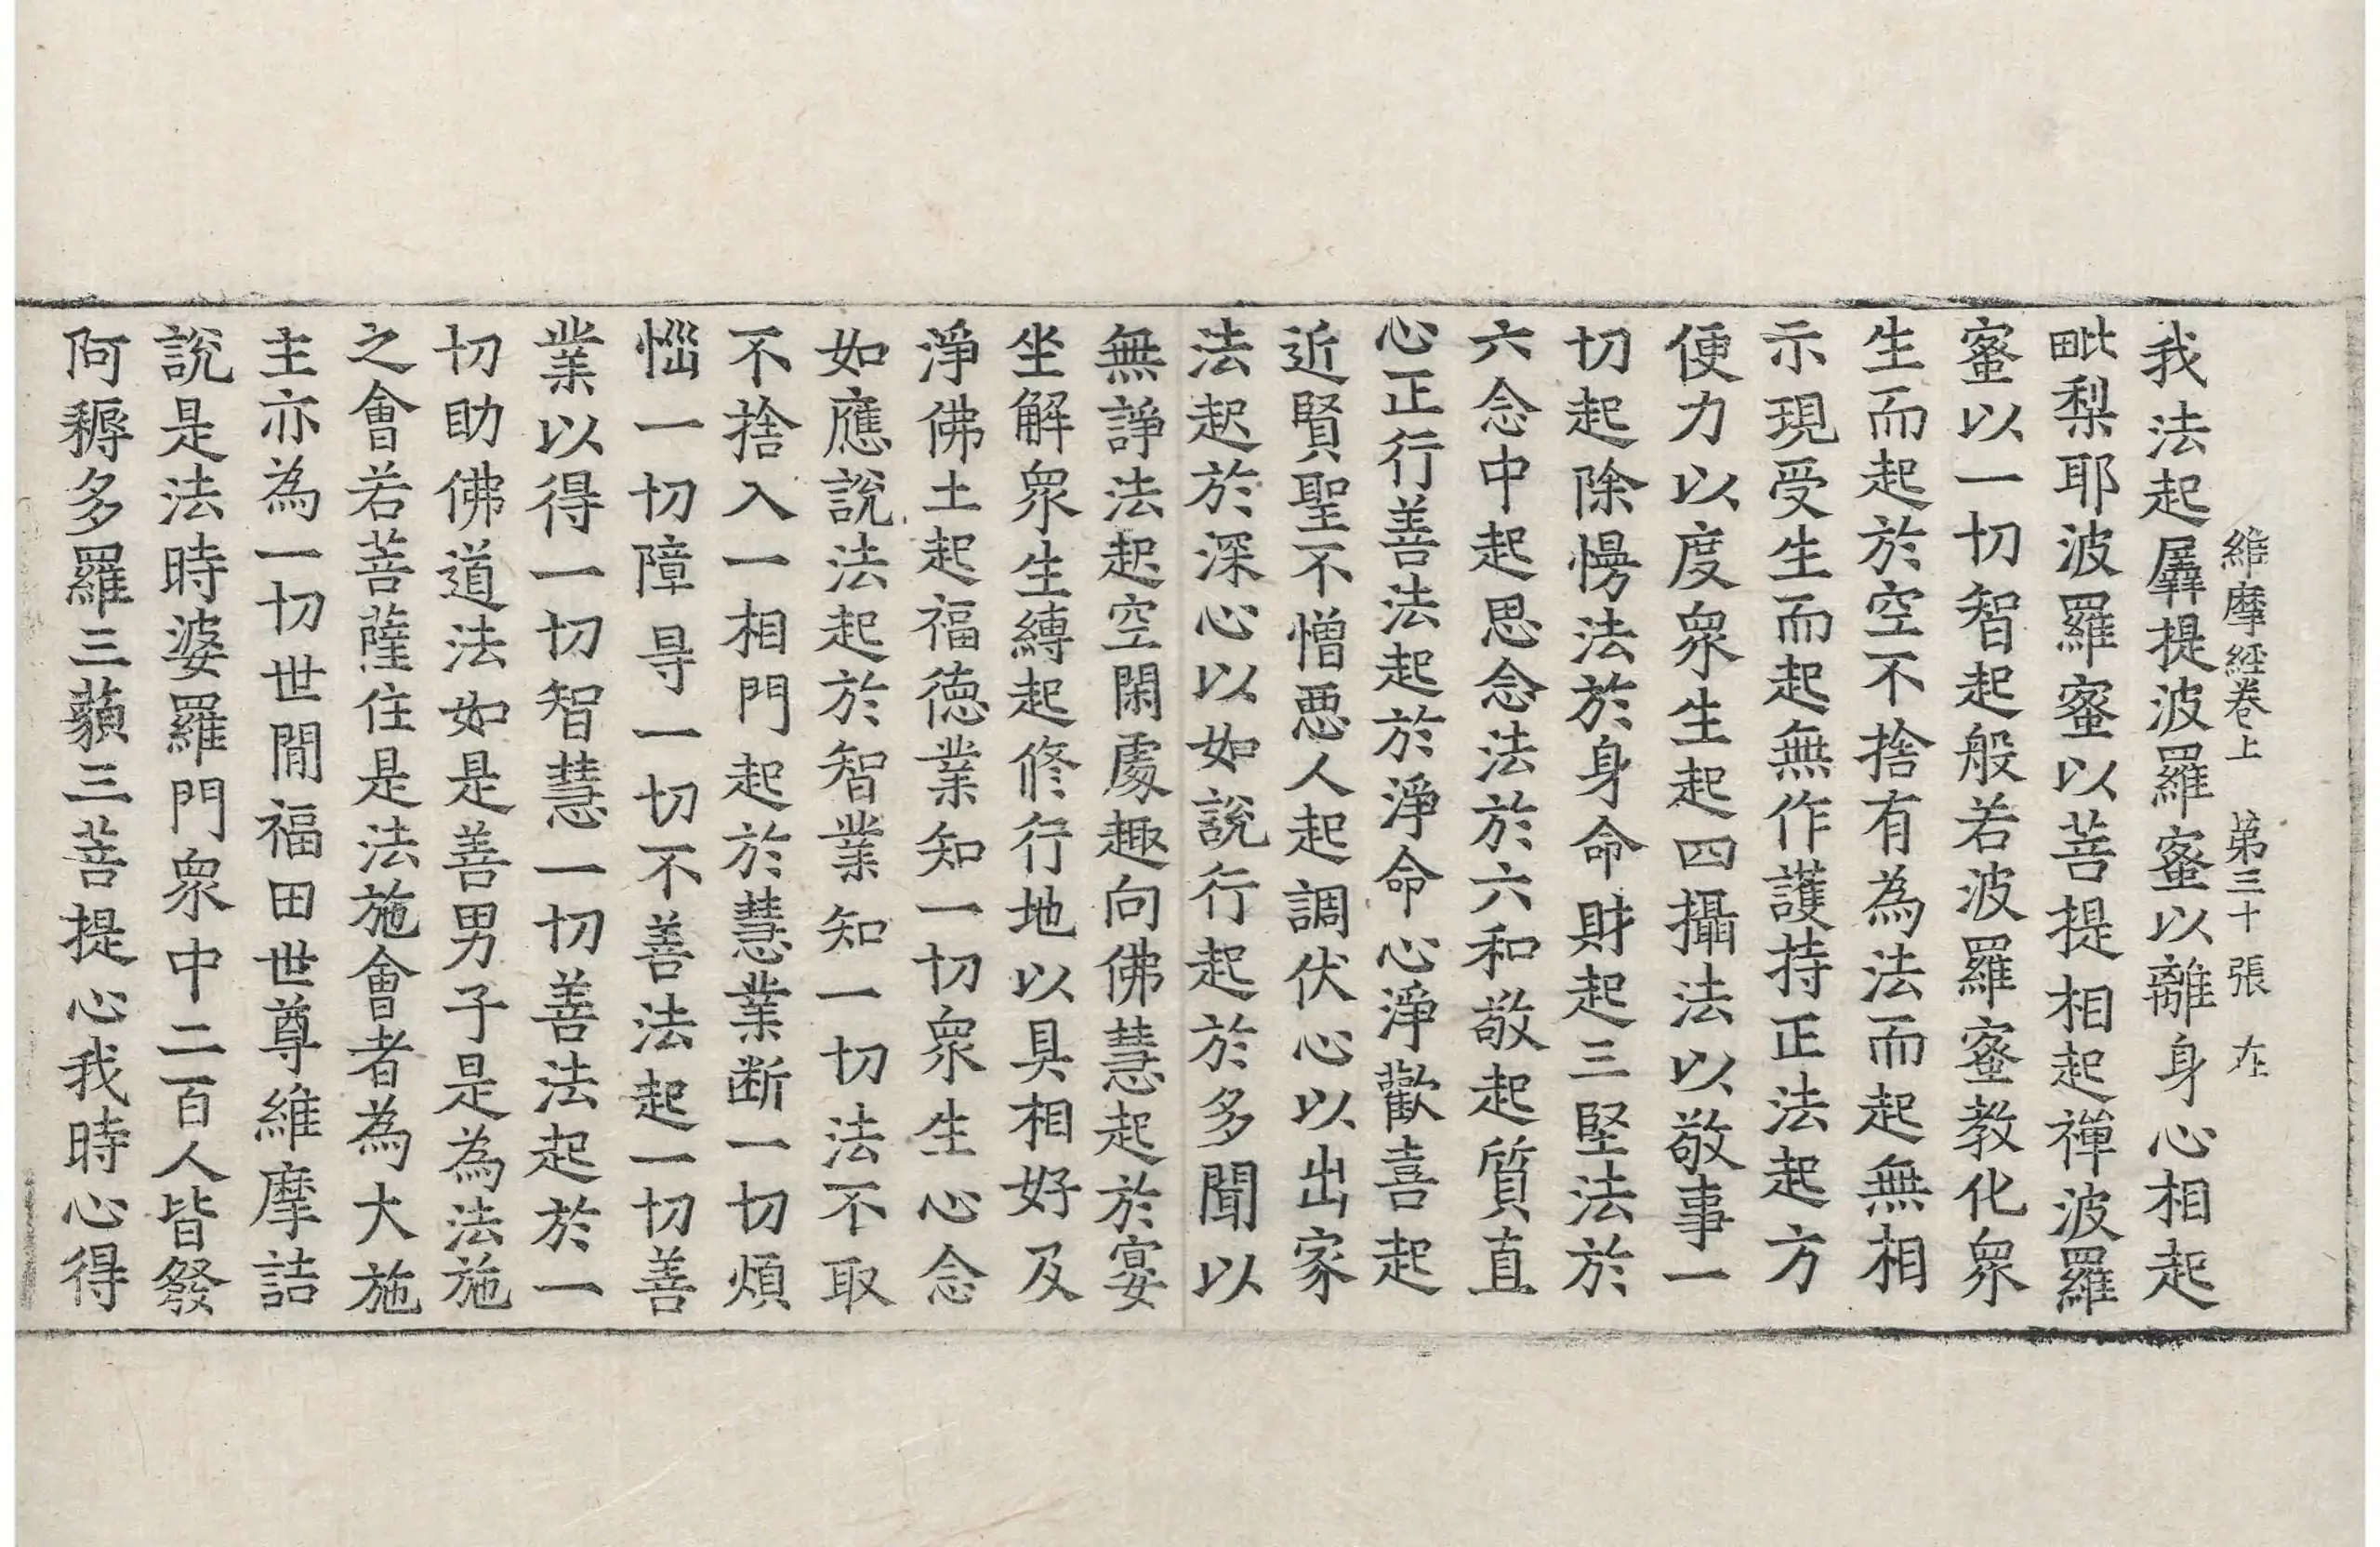 維摩經卷上 第三十張 在
我法起羼提波羅蜜以離身心相起
毗梨耶波羅蜜以菩提相起禅波羅
蜜以一切智起般若波羅蜜教化衆
生而起於空不捨有為法而起無相
示現受生而起無作護持正法起方
便力以度衆生起四攝法以敬事一
切起除慢法於身命財起三堅法於
六念中起思念法於六和敬起質直
心正行善法起於淨命心淨歡喜起
近賢聖不憎悪人起調伏心以出家
法起於深心以如說行起於多聞以
無諍法起空閑處趣向佛慧起於宴
坐解衆生縛起修行地以具相好及
淨佛土起福德業知一切衆生心念
如應說法起於智業知一切法不取
不捨入一相門起於慧業断一切煩
惱一切障㝵一切不善法起一切善
業以得一切智慧一切善法起於一
切助佛道法如是善男子是為法施
之會若菩薩住是法施會者為大施
主亦為一切世間福田世尊維摩詰
說是法時婆羅門衆中二百人皆發
阿耨多羅三藐三菩提心我時心得